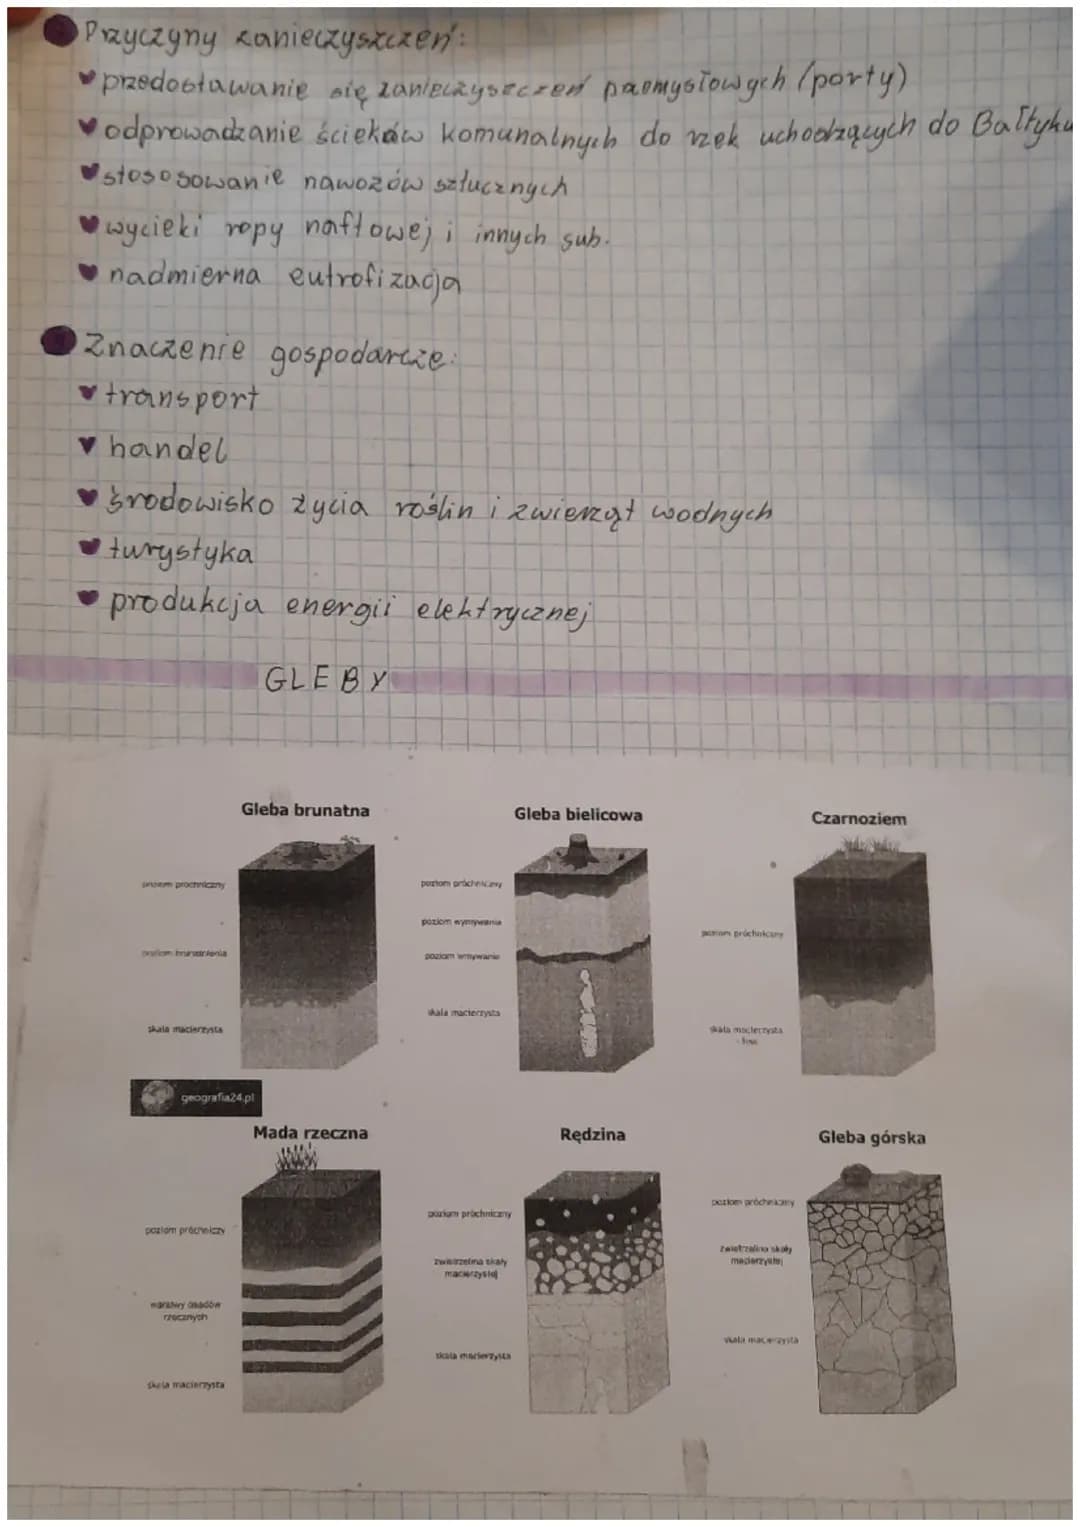 Przyczyny zanieczyszczeń:
przedostawanie się zanieczyszczeń pazmysłowych (porty)
odprowadzanie ścieków komunalnych do rzek uchodzących do Bałtyku
stososowanie nawozów sztucznych
wycieki ropy naftowej i innych sub.
nadmierna eutrofizacja
Znaczenie gospodarcze:
transport
handel
środowisko życia roślin i zwierząt wodnych
turystyka
produkcja energii elektrycznej
GLEBY
Gleba brunatna
poziom próchniczny
poziom brunatnienia
skała macierzysta
Gleba bielicowa
poziom próchniczny
poziom wymywania
poziom wmywania
skała macierzysta
Czarnoziem
poziom próchniczny
skała macierzysta
- less
geografia24.pl
Mada rzeczna
poziom próchniczy
warstwy osadów
rzecznych
skała macierzysta
Rędzina
poziom próchniczny
zwietrzelina skały
macierzystej
skała macierzysta
Gleba górska
poziom próchniczny
zwietrzelina skały
macierzystej
skała macierzysta